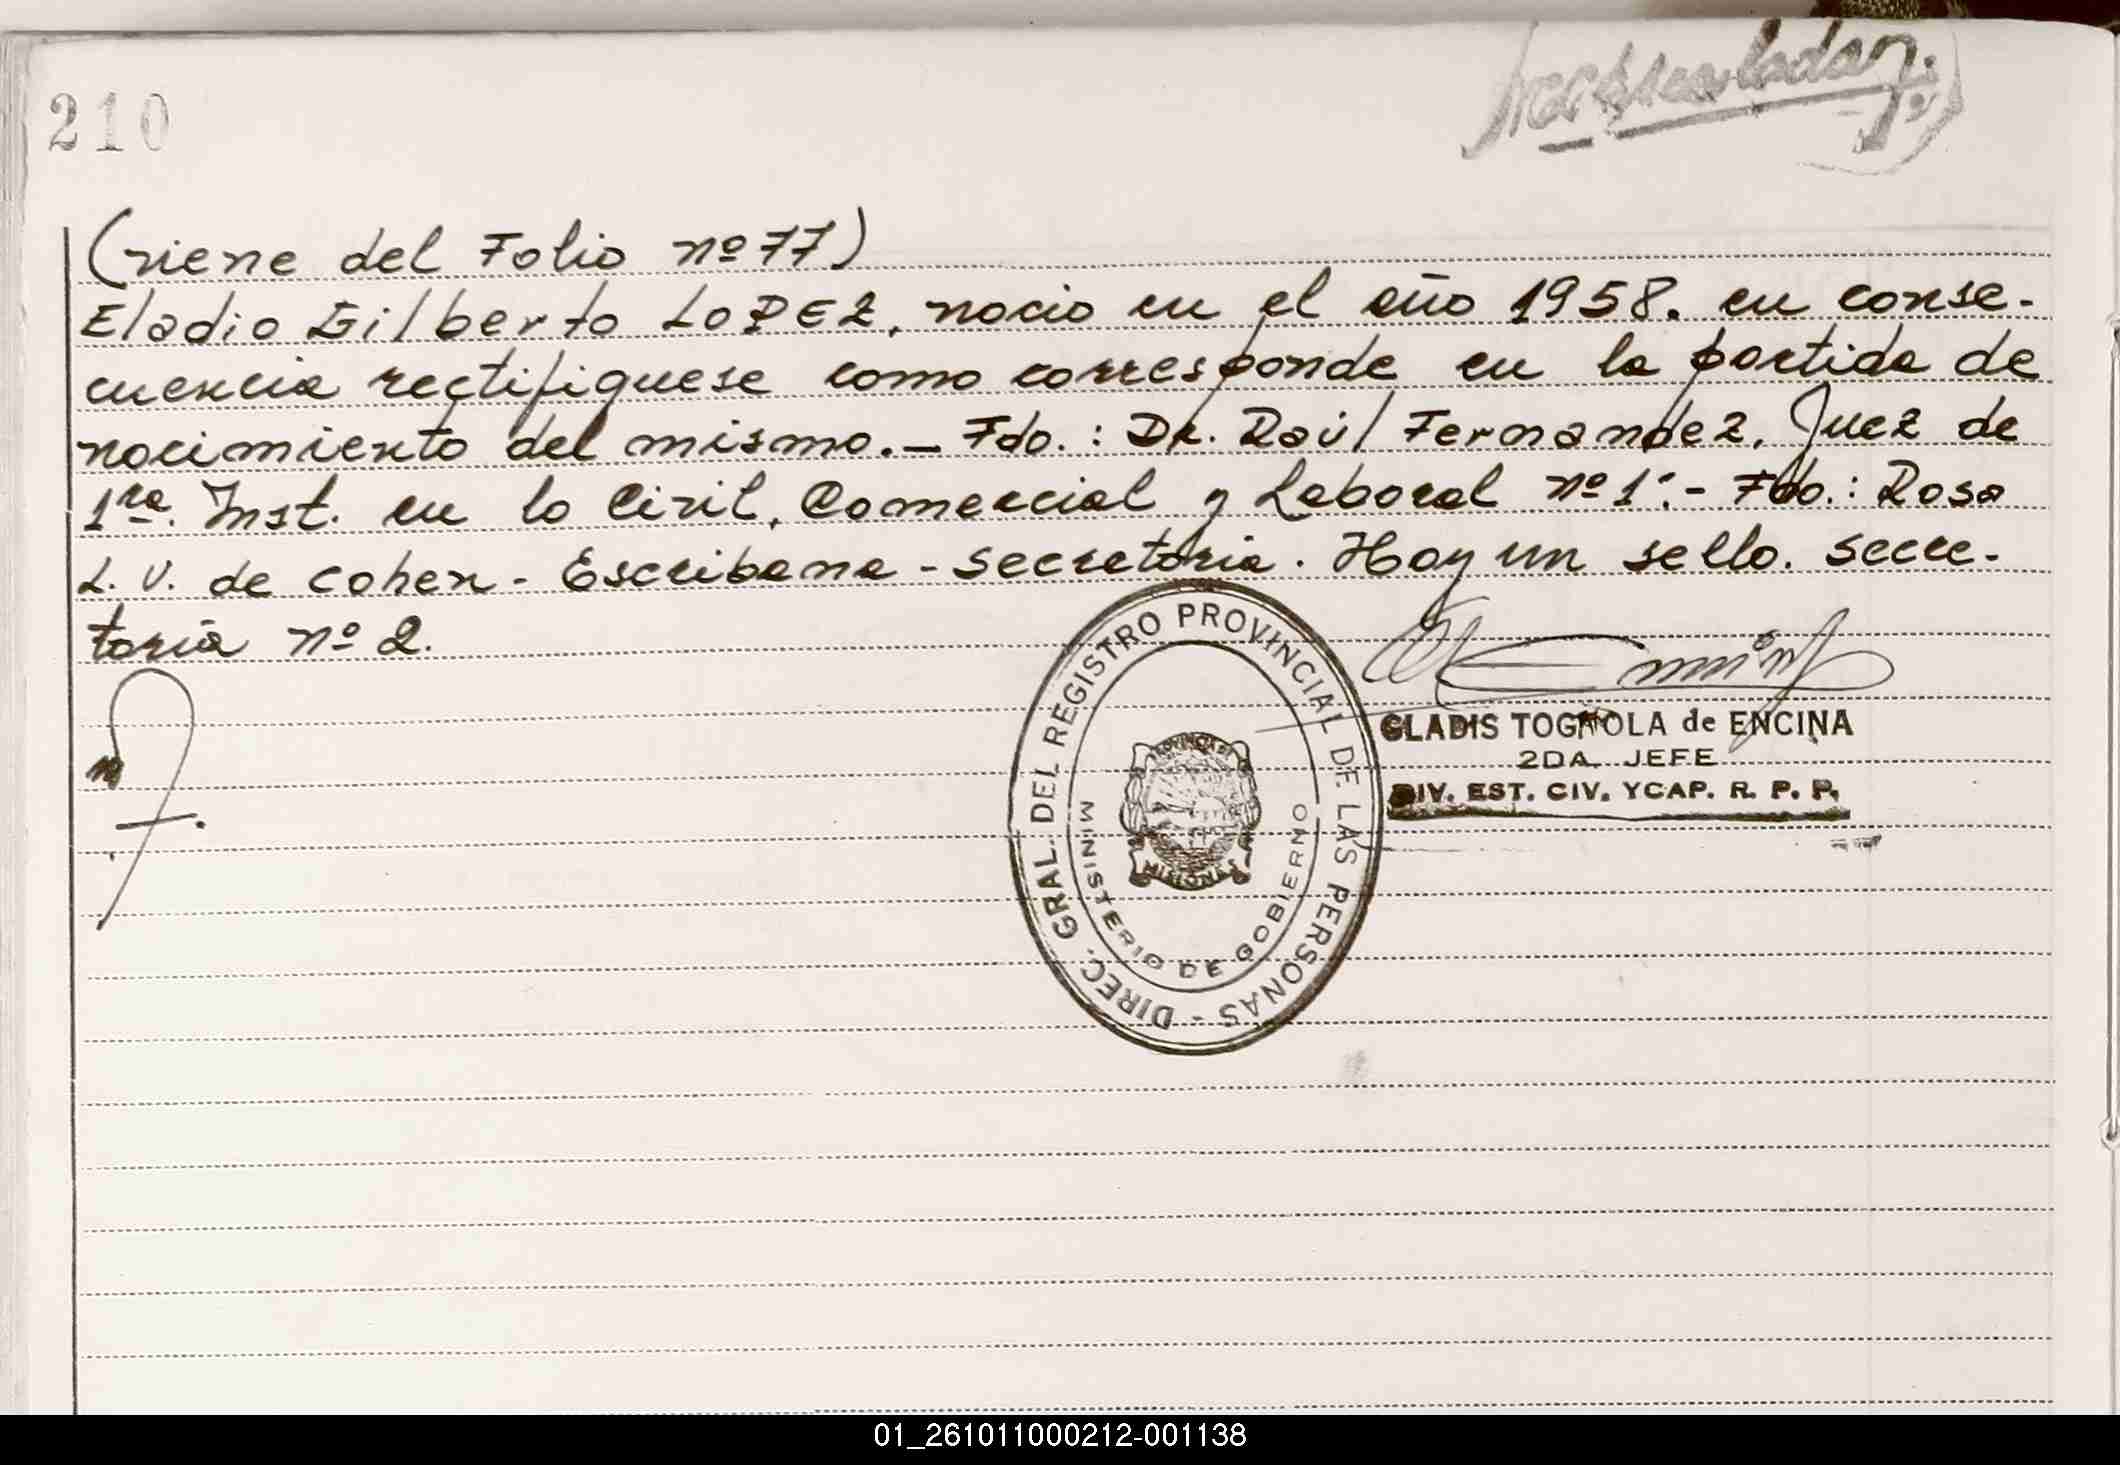 210
(viene del Folio nº 77)
Eladio Gilberto LOPEZ, nacio en el año 1958. en conse-
cuencia rectifiquese como corresponde en la partida de
nacimiento del mismo.- Fdo.: Dr. Raúl Fernandez, Juez de
1ra. Inst. en lo Civil, Comercial y Laboral nº 1.- Fdo.: Rosa
L. V. de Cohen - Escribana - Secretaria. Hay un sello. Secre-
taria nº 2.
DIREC. GRAL. DEL REGISTRO PROVINCIAL DE LAS PERSONAS -
MINISTERIO DE GOBIERNO
PROVINCIA DE
MISIONES
GLADIS TOGNOLA de ENCINA
2DA. JEFE
DIV. EST. CIV. YCAP. R. P. P.
01_261011000212-001138